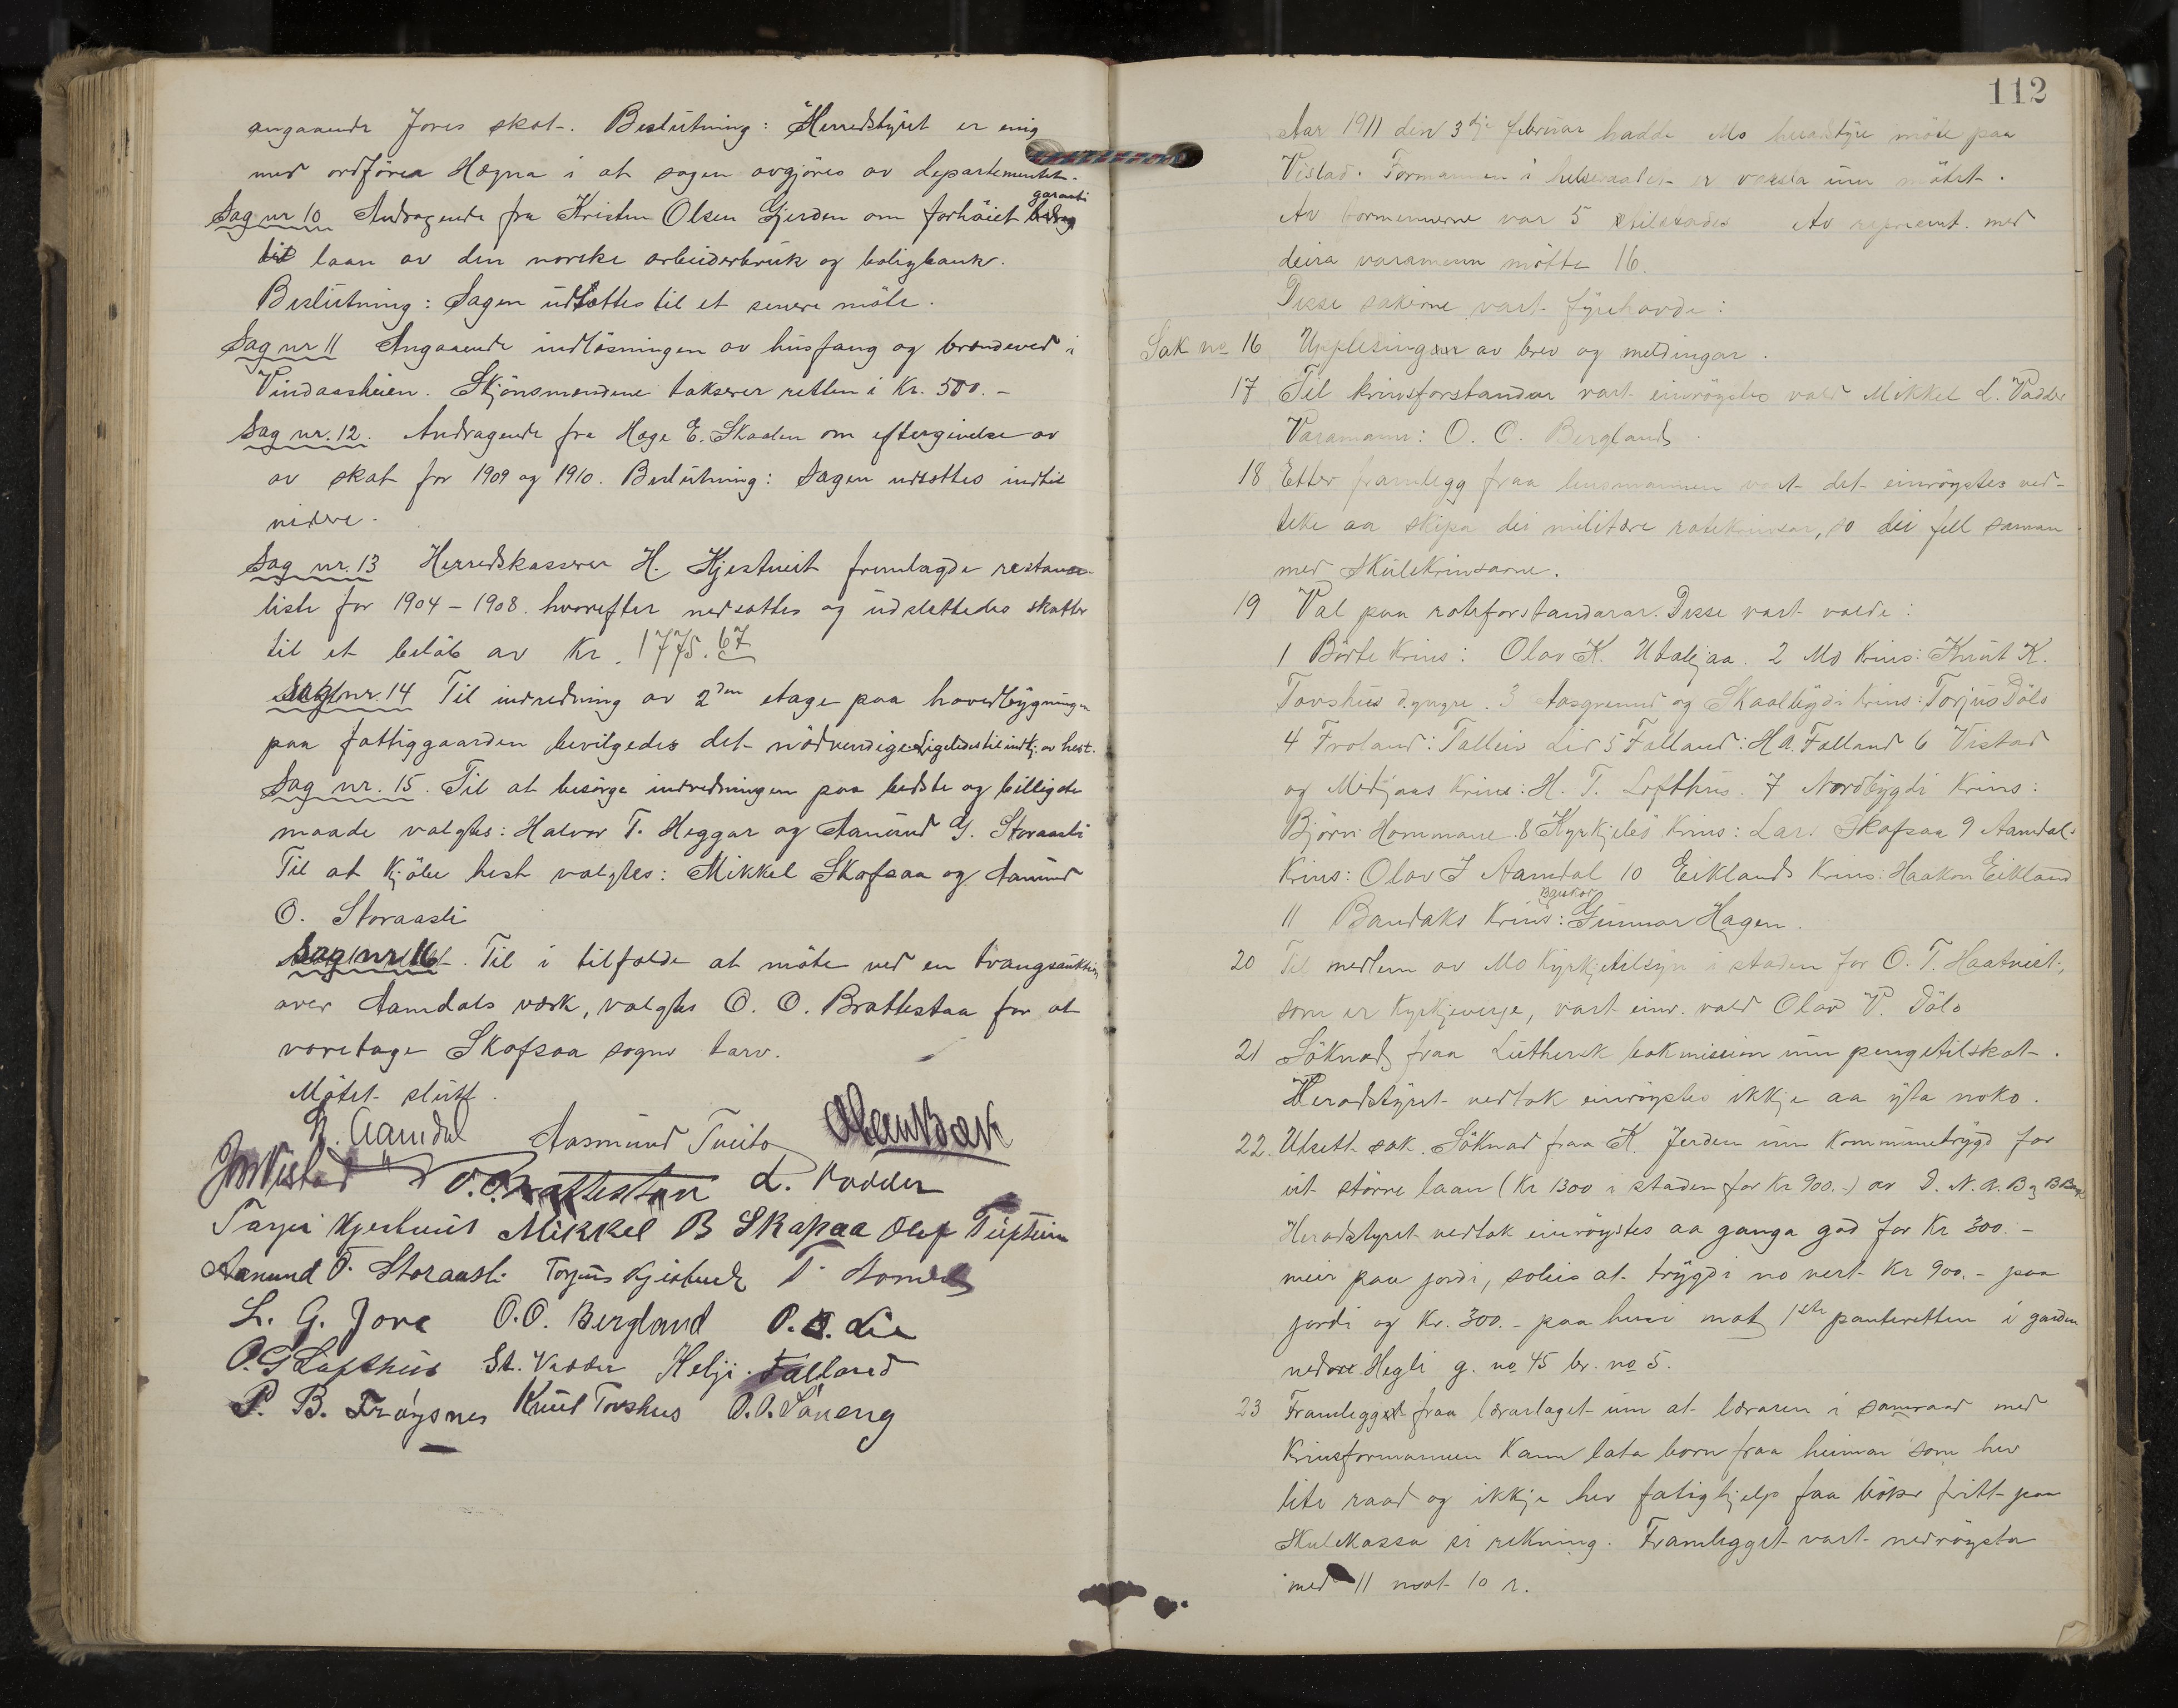 angaaende Jores skat. Beslutning: Herredstyret er enig
med ordförer Hægna i at sagen avgjöres av departementet.
garanti
Sag nr 10 Andragende fra Kristen Olsen Gjerden om forhöiet bidrag
til laan av den norske arbeiderbruk og boligbank.
Beslutning: Sagen udsættes til et senere möte.
Sag nr 11 Angaaende indlösningen av husfang og brændeved i
Vindaasheien. Skjönsmændene takserer retten i Kr. 500.-
Sag nr. 12. Andragende fra Hæge E. Skaalen om eftergivelse av
av skat for 1909 og 1910. Beslutning: Sagen udsættes indtil
videre.
Sag nr. 13 Herredskasserer H. Kjestveit fremlagde restance
liste for 1904-1908. hvorefter nedsattes og udslettedes skatter
til et belöb av Kr. 1775.67
Sag nr 14 Til indredning av 2den etage paa hovedbygningen
paa fattiggaarden bevilgedes det nödvendige. Ligeledes til indkj. av hest.
Sag nr. 15. Til at besörge indredningen paa bedste og billigste
maade valgtes: Halvor T. Heggar og Aanund G. Storaasli
Til at kjöbe hest valgtes: Mikkel Skafsaa og Aanund
O. Storaasli
Sag nr 16. Til i tilfælde at möte ved en tvangsauktion
over Aamdals værk, valgtes O. O. Brattestaa for at
varetage Skafsaa sogns tarv.
Mötet slutt.
N. Aamdal Aasmund Tveito
JNVistad O. O. Brattestaa L. Vadder
Tarjei Kjestveit Mikkel B Skafsaa Olef
Aanund O. Storaasli Torjus Kjestveit T.
L. G. Jore O. O. Bergland O. S. Lie
O. G Lofthus St. Vadder Helje Falland
P. B. Fröysnes Knut Tovshus O. O. Saneng
112
Aar 1911 den 3dje februar hadde Mo heradstyre möte paa
Vistad. Formannen i helseraadet er varsla um mötet.
Av formennerne var 5 tilstades Av represent. med
deira varamenn mötte 16.
Desse sakerne vart fyrehavde:
Sak no 16 Upplesing av brev og meldingar.
17 Til krinsforstandar vart einröystes vald Mikkel L. Vadder
Varamann: O. O. Bergland.
18 Etter framlegg fraa lensmannen vart det einröystes ved-
teke aa skipa dei militære rotekrinsar, so dei fell saman
med Skulekrinsarne.
19 Val paa roteforstandarar. Desse vart valde:
1 Börte Krins: Olav K. Utabjaa. 2 Mo Krins: Knut K.
Tovshus d. yngre. 3 Aasgrend og Skaalbygdi krins: Torjus Döls
4 Froland: Talleiv Lid 5 Falland: H A. Falland 6 Vistad
og Midjaas Krins: H. T. Lofthus. 7 Nordbygdi Krins:
Björn Hommane. 8 Kyrkjebö Krins: Lars Skafsaa 9 Aamdals
Krins: Olav J Aamdal 10 Eiklands Krins: Haakon Eikland
11 Bandaks Krins: Gunnar Hagen.
20 Til medlem av Mo kyrkjetilsyn i staden for O. T. Haatveit,
som er kyrkjeverje, vart einr. vald Olav V. Döls
21 Söknad fraa Luthersk bokmission um pengetilskot.
Heradstyret vedtok einröystes ikkje aa yta noko.
22. Utsett sak. Söknad fraa K. Jerden um kommunetrygd for
eit större laan (Kr 1300 i staden for Kr 900.-) av D. N. A. B og B Bank
Heradstyret vedtok einröystes aa ganga god for Kr 300.-
meir paa jordi, soleis at trygdi no vert Kr 900.- paa
jordi og Kr. 300.- paa husi mot 1ste panteretten i garden
nedre Hegli g. no 45 br. no 5.
23 Framlegget fraa lærarlaget um at læraren i samraad med
Krinsformannen kann lata born fraa heimar som hev
lite raad og ikkje hev fatighjelp faa böker fritt paa
Skulekassa si rekning. Framlegget vart nedröysta
med 11 mot 10 r.